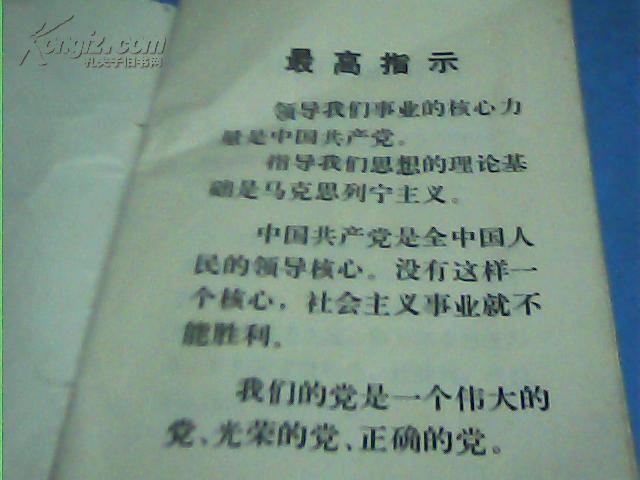 Kongfz.com
孔夫子旧书网
最高指示
领导我们事业的核心力
量是中国共产党。
指导我们思想的理论基
础是马克思列宁主义。
中国共产党是全中国人
民的领导核心。没有这样一
个核心，社会主义事业就不
能胜利。
我们的党是一个伟大的
党、光荣的党、正确的党。